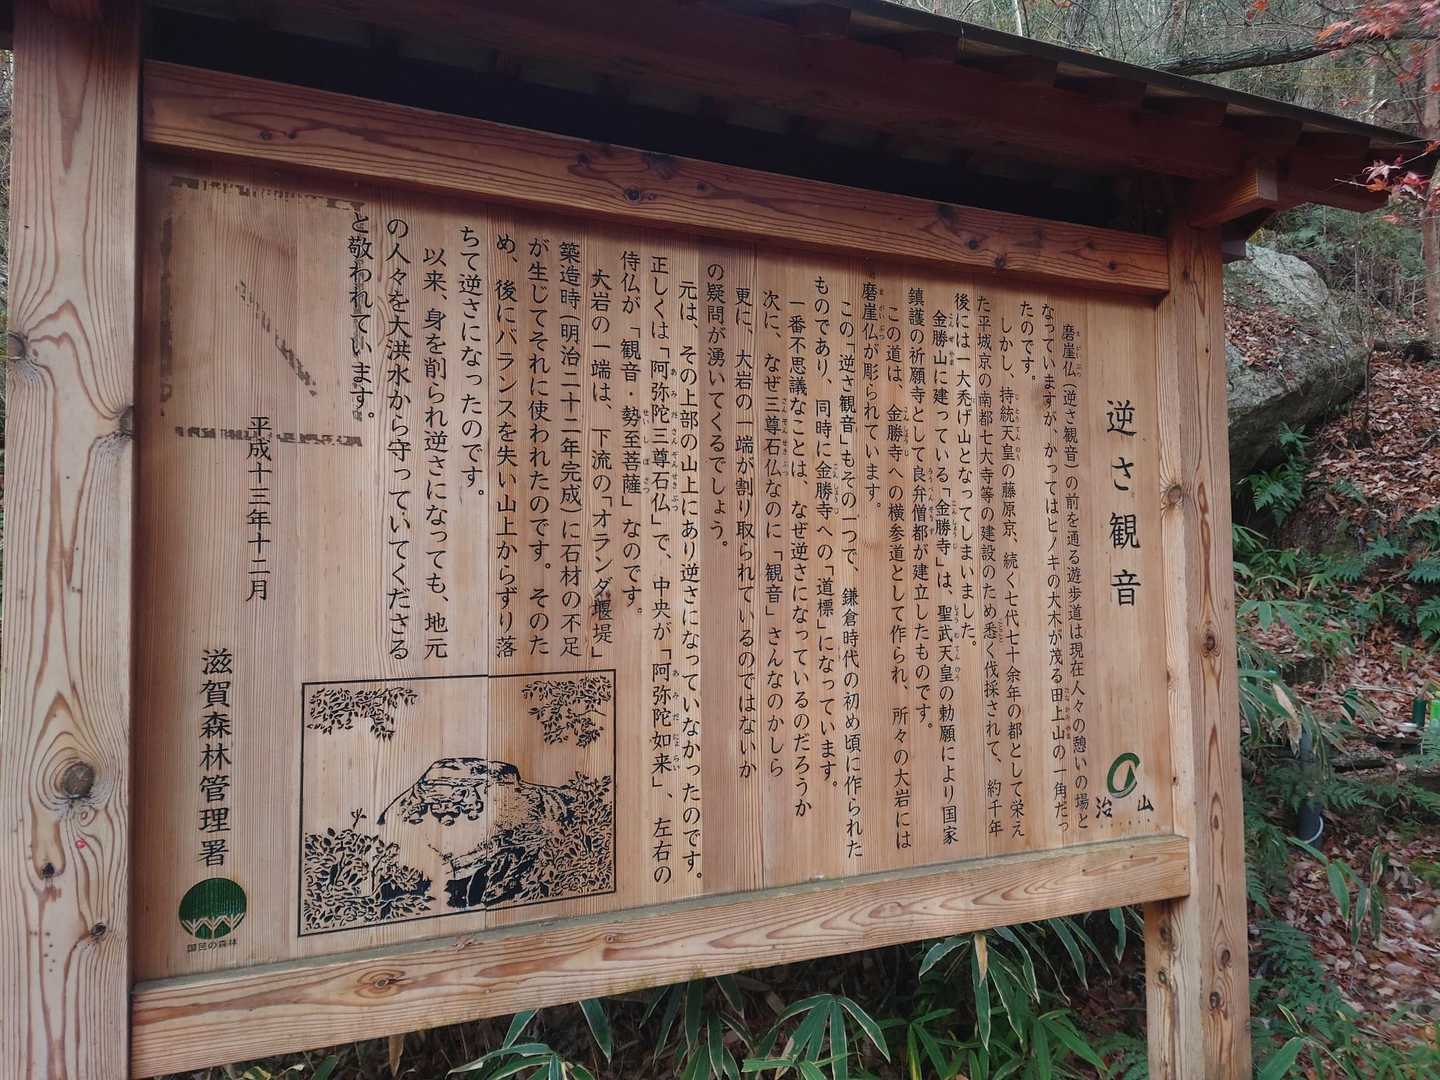 逆さ観音
治山
磨崖仏(逆さ観音)の前を通る遊歩道は現在人々の憩いの場と
なっていますが、かつてはヒノキの大木が茂る田上山の一角だっ
たのです。
しかし、持統天皇の藤原京、続く七代七十余年の都として栄え
た平城京の南都七大寺等の建設のため悉く伐採されて、約千年
後には一大禿げ山となってしまいました。
金勝山に建っている「金勝寺」は、聖武天皇の勅願により国家
鎮護の祈願寺として良弁僧都が建立したものです。
この道は、金勝寺への横参道として作られ、所々の大岩には
磨崖仏が彫られています。
この「逆さ観音」もその一つで、鎌倉時代の初め頃に作られた
ものであり、同時に金勝寺への「道標」になっています。
一番不思議なことは、なぜ逆さになっているのだろうか
次に、なぜ三尊石仏なのに「観音」さんなのかしら
更に、大岩の一端が割り取られているのではないか
の疑問が湧いてくるでしょう。
元は、その上部の山上にあり逆さになっていなかったのです。
正しくは「阿弥陀三尊石仏」で、中央が「阿弥陀如来」、左右の
侍仏が「観音・勢至菩薩」なのです。
大岩の一端は、下流の「オランダ堰堤」
築造時(明治二十二年完成)に石材の不足
が生じてそれに使われたのです。そのた
め、後にバランスを失い山上からずり落
ちて逆さになったのです。
以来、身を削られ逆さになっても、地元
の人々を大洪水から守っていてくださる
と敬われています。
平成十三年十二月
滋賀森林管理署
国民の森林